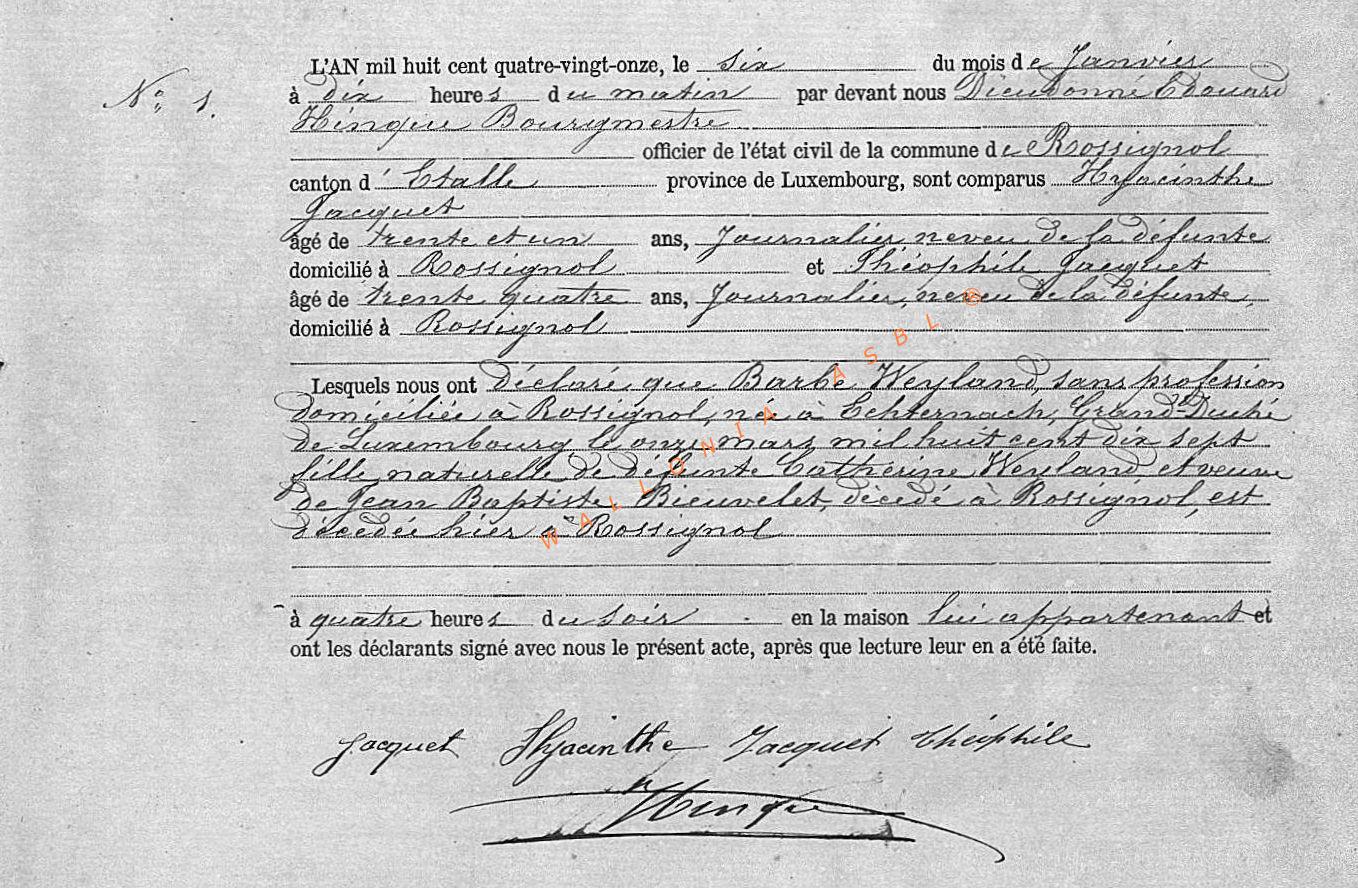 L'AN mil huit cent quatre-vingt-onze, le six du mois de Janvier
N° 1. à dix heures du matin par devant nous Dieudonné Edouard
Hinque Bourgmestre
officier de l'état civil de la commune de Rossignol
canton d'Etalle province de Luxembourg, sont comparus Hyacinthe
Jacquet
âgé de trente et un ans, Journalier neveu de la défunte
domicilié à Rossignol et Théophile Jacquet
âgé de trente quatre ans, Journalier, neveu de la défunte
domicilié à Rossignol
Lesquels nous ont déclaré que Barbe Weyland, sans profession
domiciliée à Rossignol, née à Echternach, Grand-Duché
de Luxembourg le onze mars mil huit cent dix sept
fille naturelle de défunte Catherine Weyland et veuve
de Jean Baptiste Bieuvelet, décédé à Rossignol, est
décédée hier à Rossignol
à quatre heures du soir en la maison lui appartenant et
ont les déclarants signé avec nous le présent acte, après que lecture leur en a été faite.
Jacquet Hyacinthe Jacquet Théophile
Hinque
WALLONIA ASBL ®